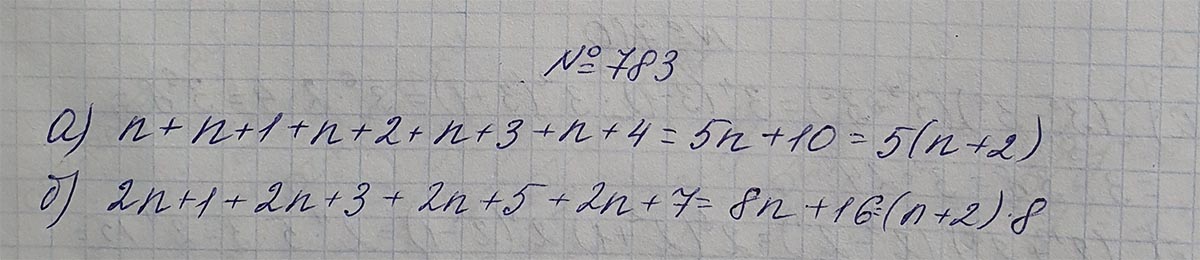 № 783
а) n + n + 1 + n + 2 + n + 3 + n + 4 = 5n + 10 = 5(n + 2)
б) 2n + 1 + 2n + 3 + 2n + 5 + 2n + 7 = 8n + 16 = (n + 2) · 8